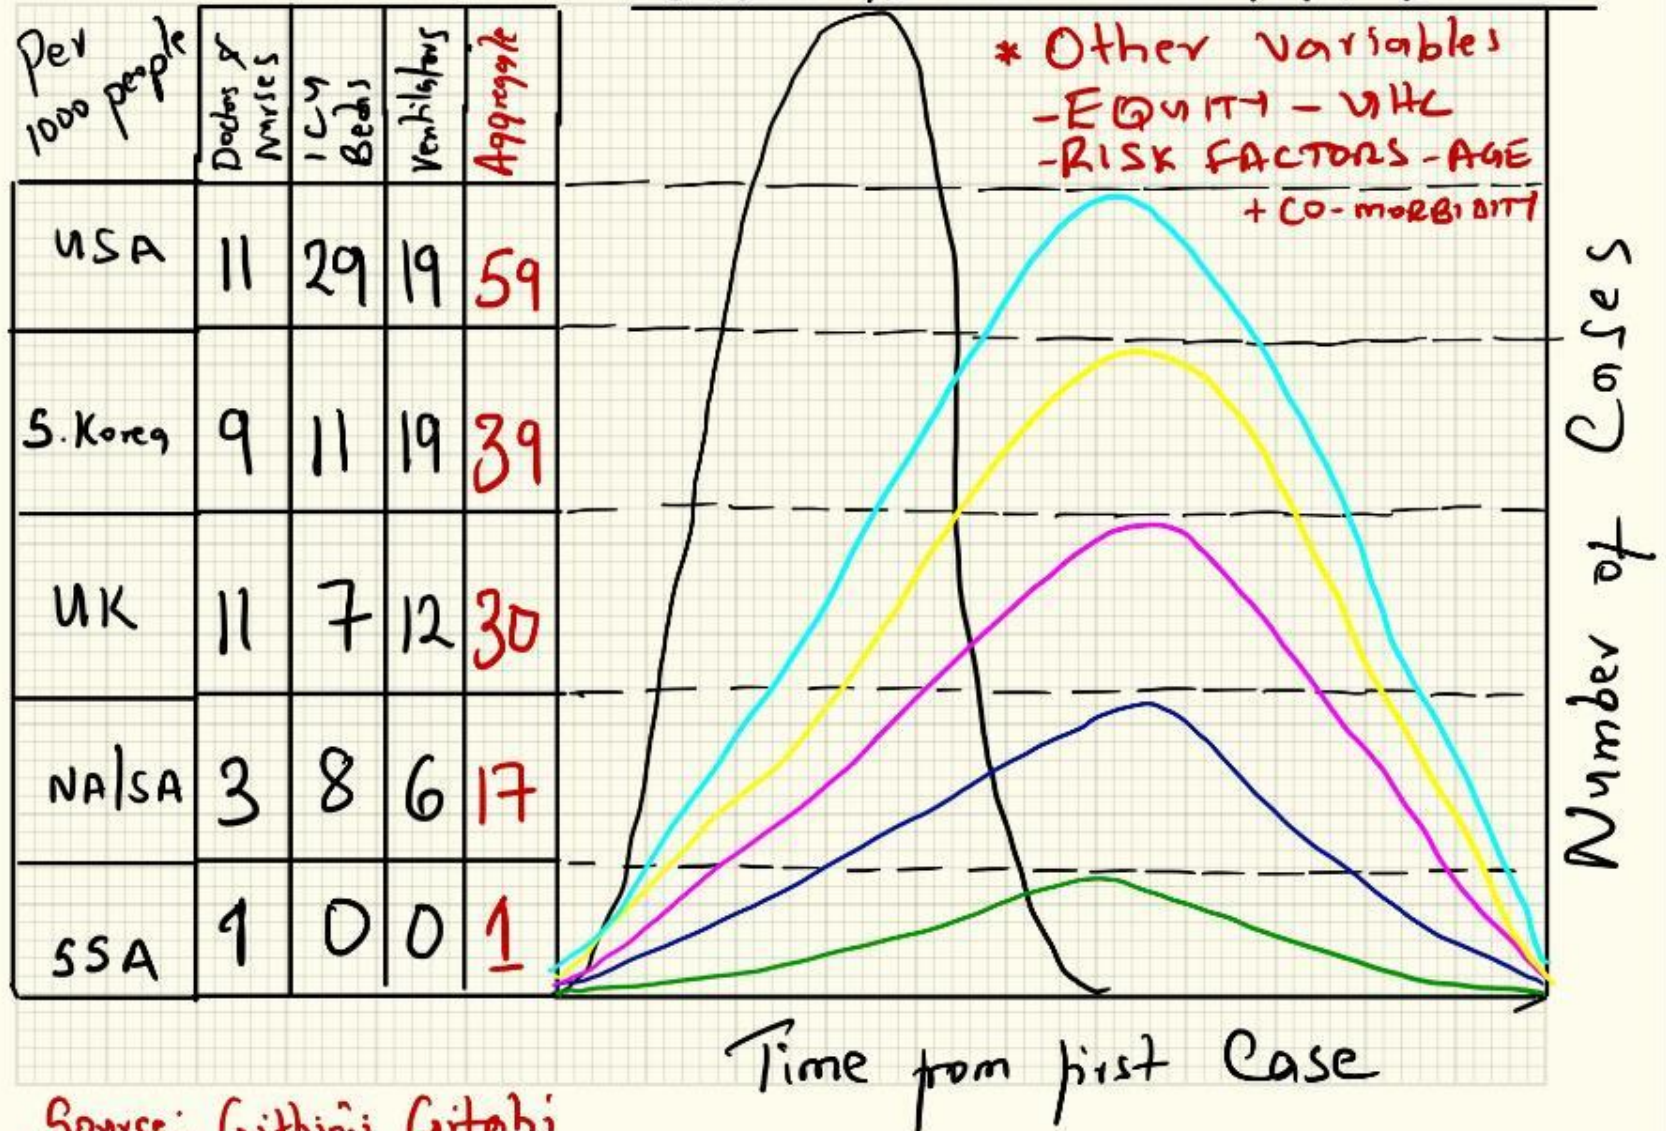 Per 1000 people
Doctors & Nurses
ICU Beds
Ventilators
Aggregate
USA 11 29 19 59
S.Korea 9 11 19 39
UK 11 7 12 30
NA/SA 3 8 6 17
SSA 1 0 0 1
* Other variables
- EQUITY - UHC
- RISK FACTORS - AGE
+ CO-MORBIDITY
Number of Cases
Time from first Case
Source: Githinji Gitahi